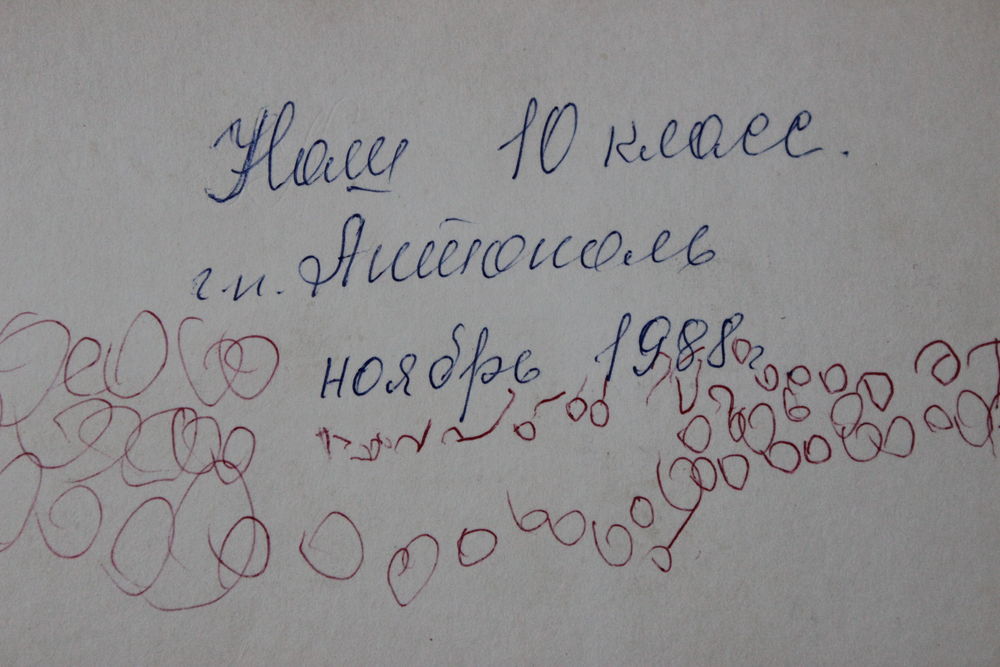 Наш 10 класс.
г.п. Антополь
ноябрь 1988г